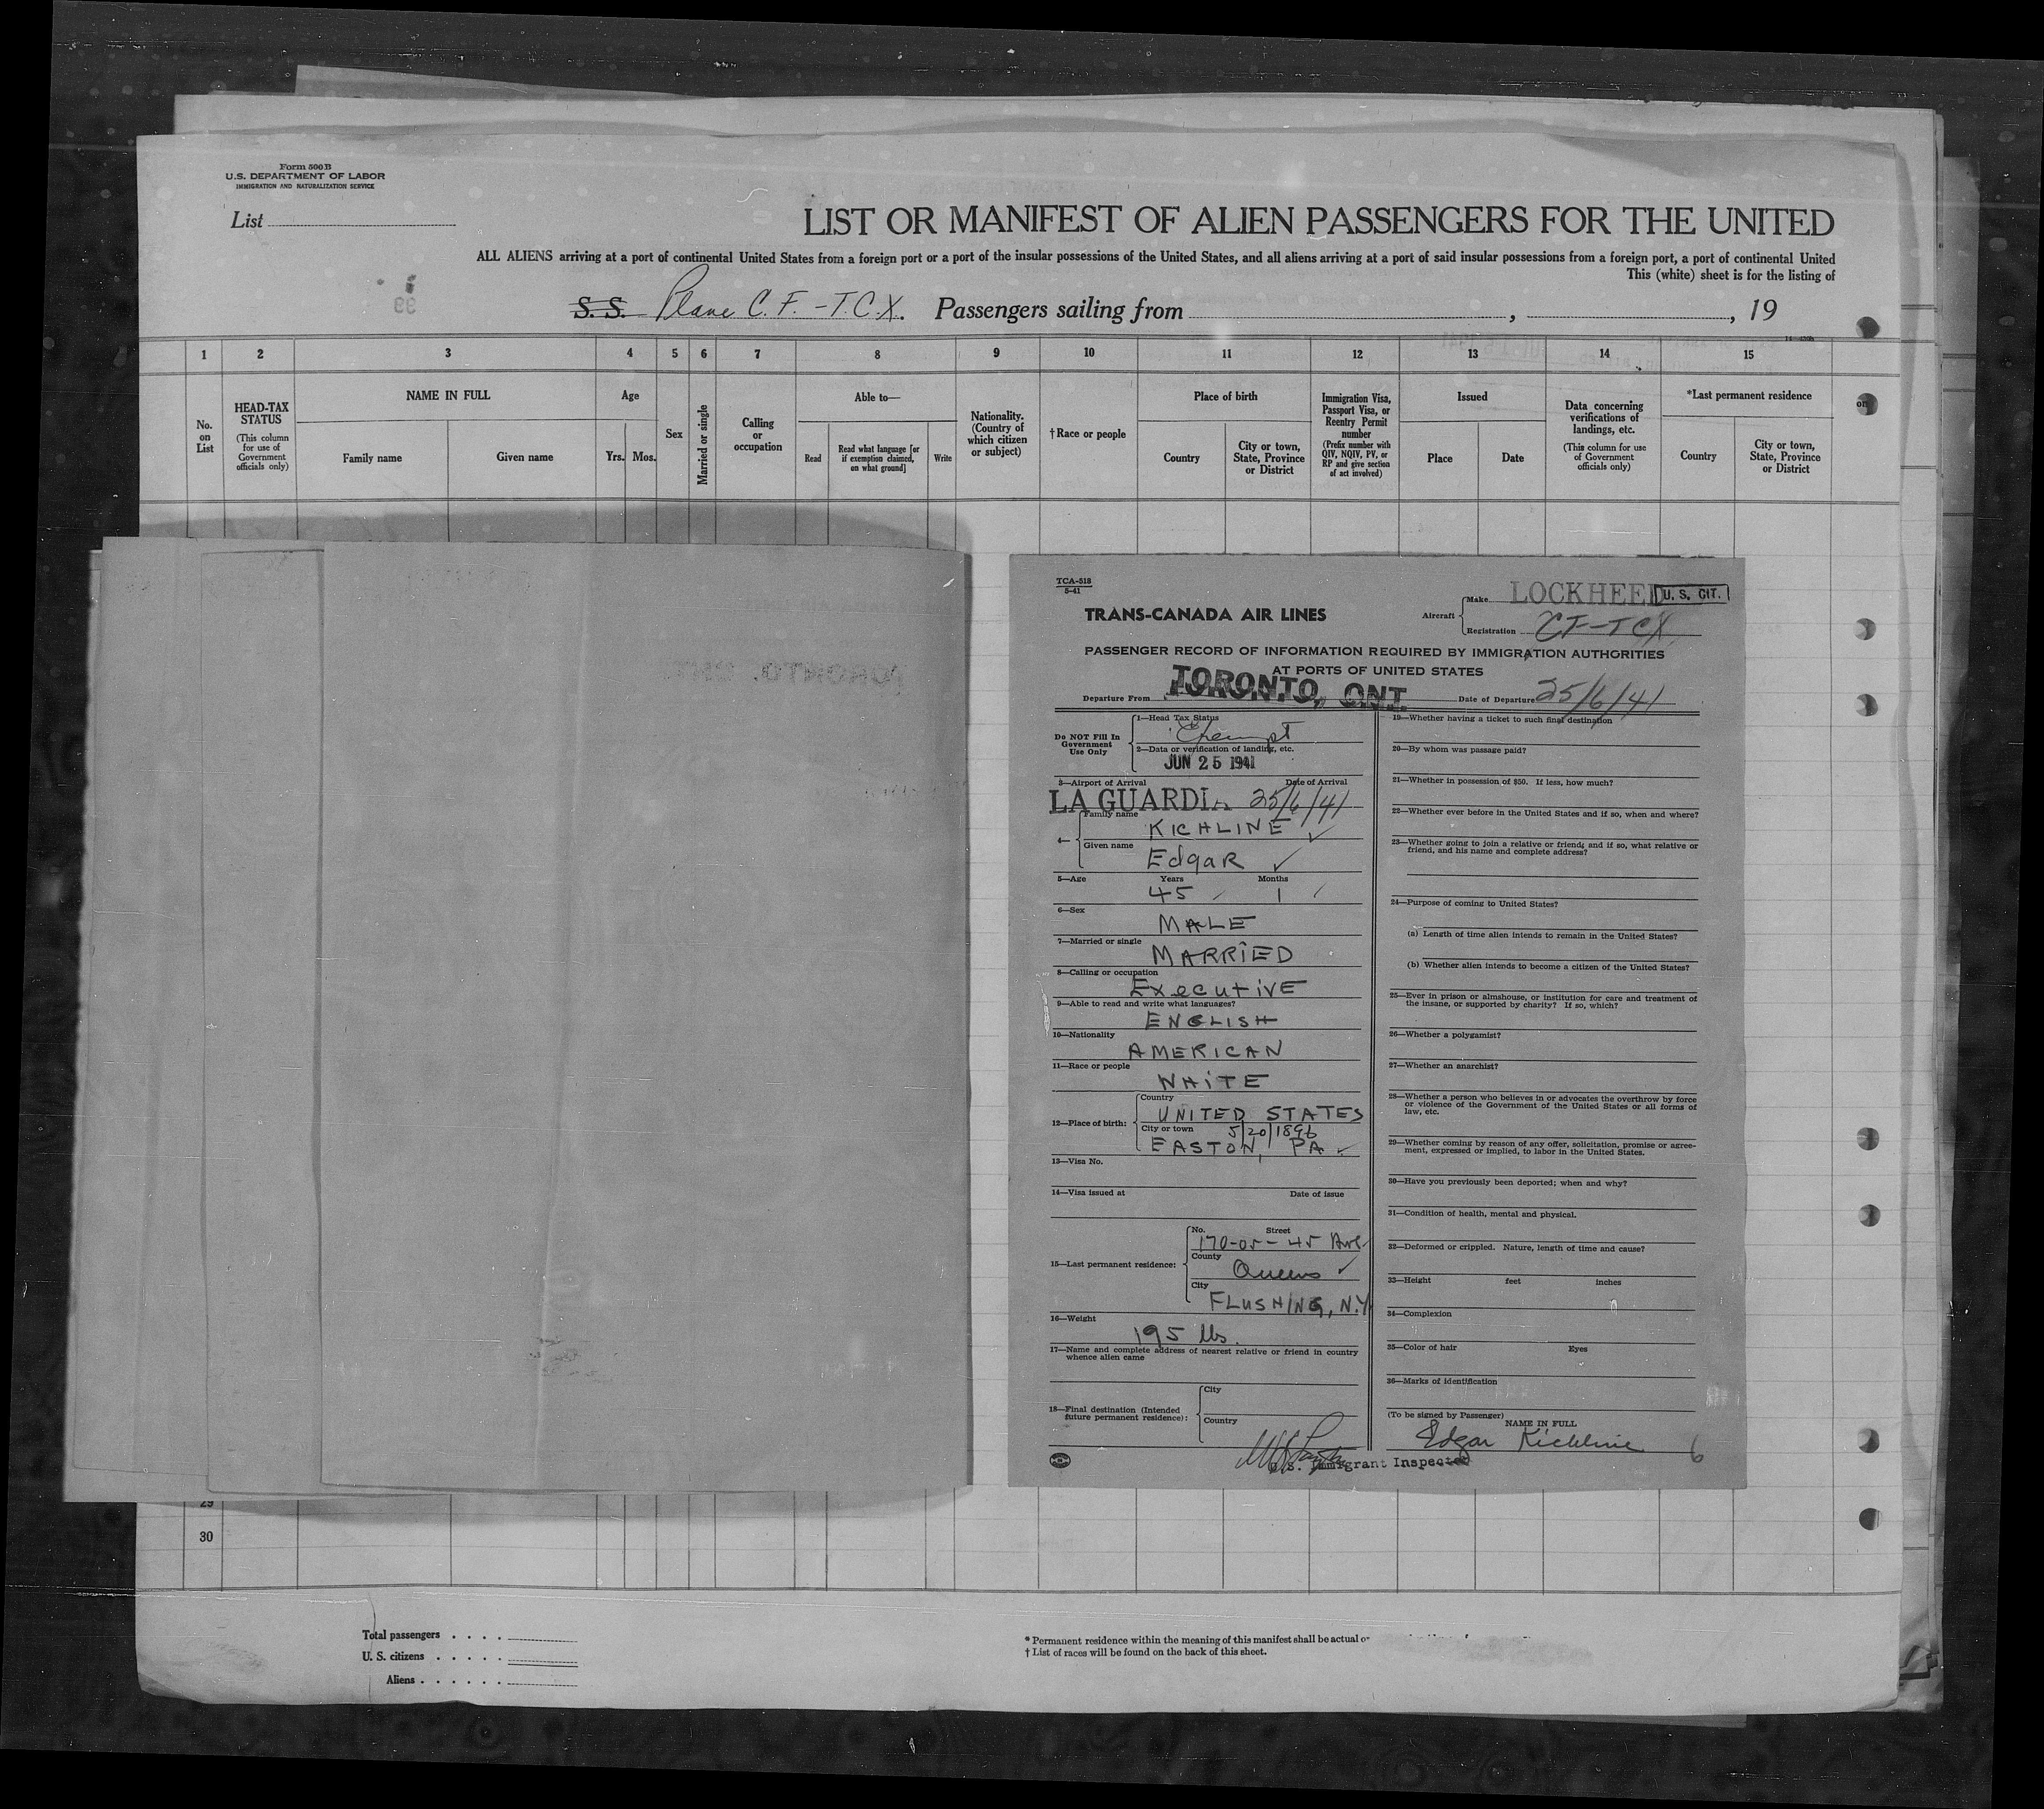 Form 500 B
U.S. DEPARTMENT OF LABOR
IMMIGRATION AND NATURALIZATION SERVICE
List
LIST OR MANIFEST OF ALIEN PASSENGERS FOR THE UNITED
ALL ALIENS arriving at a port of continental United States from a foreign port or a port of the insular possessions of the United States, and all aliens arriving at a port of said insular possessions from a foreign port, a port of continental United
This (white) sheet is for the listing of
S.S. Plane C.F.-T.C.X. Passengers sailing from , , 19
1 2 3 4 5 6 7 8 9 10 11 12 13 14 15
No. on List
HEAD-TAX STATUS
(This column for use of Government officials only)
NAME IN FULL
Family name Given name
Age
Yrs. Mos.
Sex
Married or single
Calling or occupation
Able to—
Read
Read what language [or if exemption claimed, on what ground]
Write
Nationality. (Country of which citizen or subject)
†Race or people
Place of birth
Country
City or town, State, Province or District
Immigration Visa, Passport Visa, or Reentry Permit number
(Prefix number with QIV, NQIV, PV, or RP and give section of act involved)
Issued
Place Date
Data concerning verifications of landings, etc.
(This column for use of Government officials only)
*Last permanent residence
Country
City or town, State, Province or District
TCA-518
5-41
TRANS-CANADA AIR LINES
Aircraft
Make LOCKHEED
U. S. CIT.
Registration CF-TCX
PASSENGER RECORD OF INFORMATION REQUIRED BY IMMIGRATION AUTHORITIES
AT PORTS OF UNITED STATES
Departure From TORONTO, ONT. Date of Departure 25/6/41
Do NOT Fill In
Government
Use Only
1—Head Tax Status
Exempt
2—Data or verification of landing, etc.
JUN 25 1941
3—Airport of Arrival Date of Arrival
LA GUARDIA 25/6/41
4—
Family name
KICHLINE
Given name
Edgar
5—Age Years Months
45 1
6—Sex
MALE
7—Married or single
MARRIED
8—Calling or occupation
Executive
9—Able to read and write what languages?
ENGLISH
10—Nationality
AMERICAN
11—Race or people
WHITE
12—Place of birth:
Country
UNITED STATES
City or town 5/20/1896
EASTON, PA
13—Visa No.
14—Visa issued at Date of issue
15—Last permanent residence:
No. Street
170-05-45 Ave
County
Queens
City
FLUSHING, N.Y
16—Weight
195 lbs.
17—Name and complete address of nearest relative or friend in country
whence alien came
18—Final destination (Intended
future permanent residence):
City
Country
U.S. Immigrant Inspector
19—Whether having a ticket to such final destination
20—By whom was passage paid?
21—Whether in possession of $50. If less, how much?
22—Whether ever before in the United States and if so, when and where?
23—Whether going to join a relative or friend; and if so, what relative or
friend, and his name and complete address?
24—Purpose of coming to United States?
(a) Length of time alien intends to remain in the United States?
(b) Whether alien intends to become a citizen of the United States?
25—Ever in prison or almshouse, or institution for care and treatment of
the insane, or supported by charity? If so, which?
26—Whether a polygamist?
27—Whether an anarchist?
28—Whether a person who believes in or advocates the overthrow by force
or violence of the Government of the United States or all forms of
law, etc.
29—Whether coming by reason of any offer, solicitation, promise or agree-
ment, expressed or implied, to labor in the United States.
30—Have you previously been deported; when and why?
31—Condition of health, mental and physical.
32—Deformed or crippled. Nature, length of time and cause?
33—Height feet inches
34—Complexion
35—Color of hair Eyes
36—Marks of identification
(To be signed by Passenger)
NAME IN FULL
Edgar Kichline 6
29
30
Total passengers
U. S. citizens
Aliens
* Permanent residence within the meaning of this manifest shall be actual
† List of races will be found on the back of this sheet.